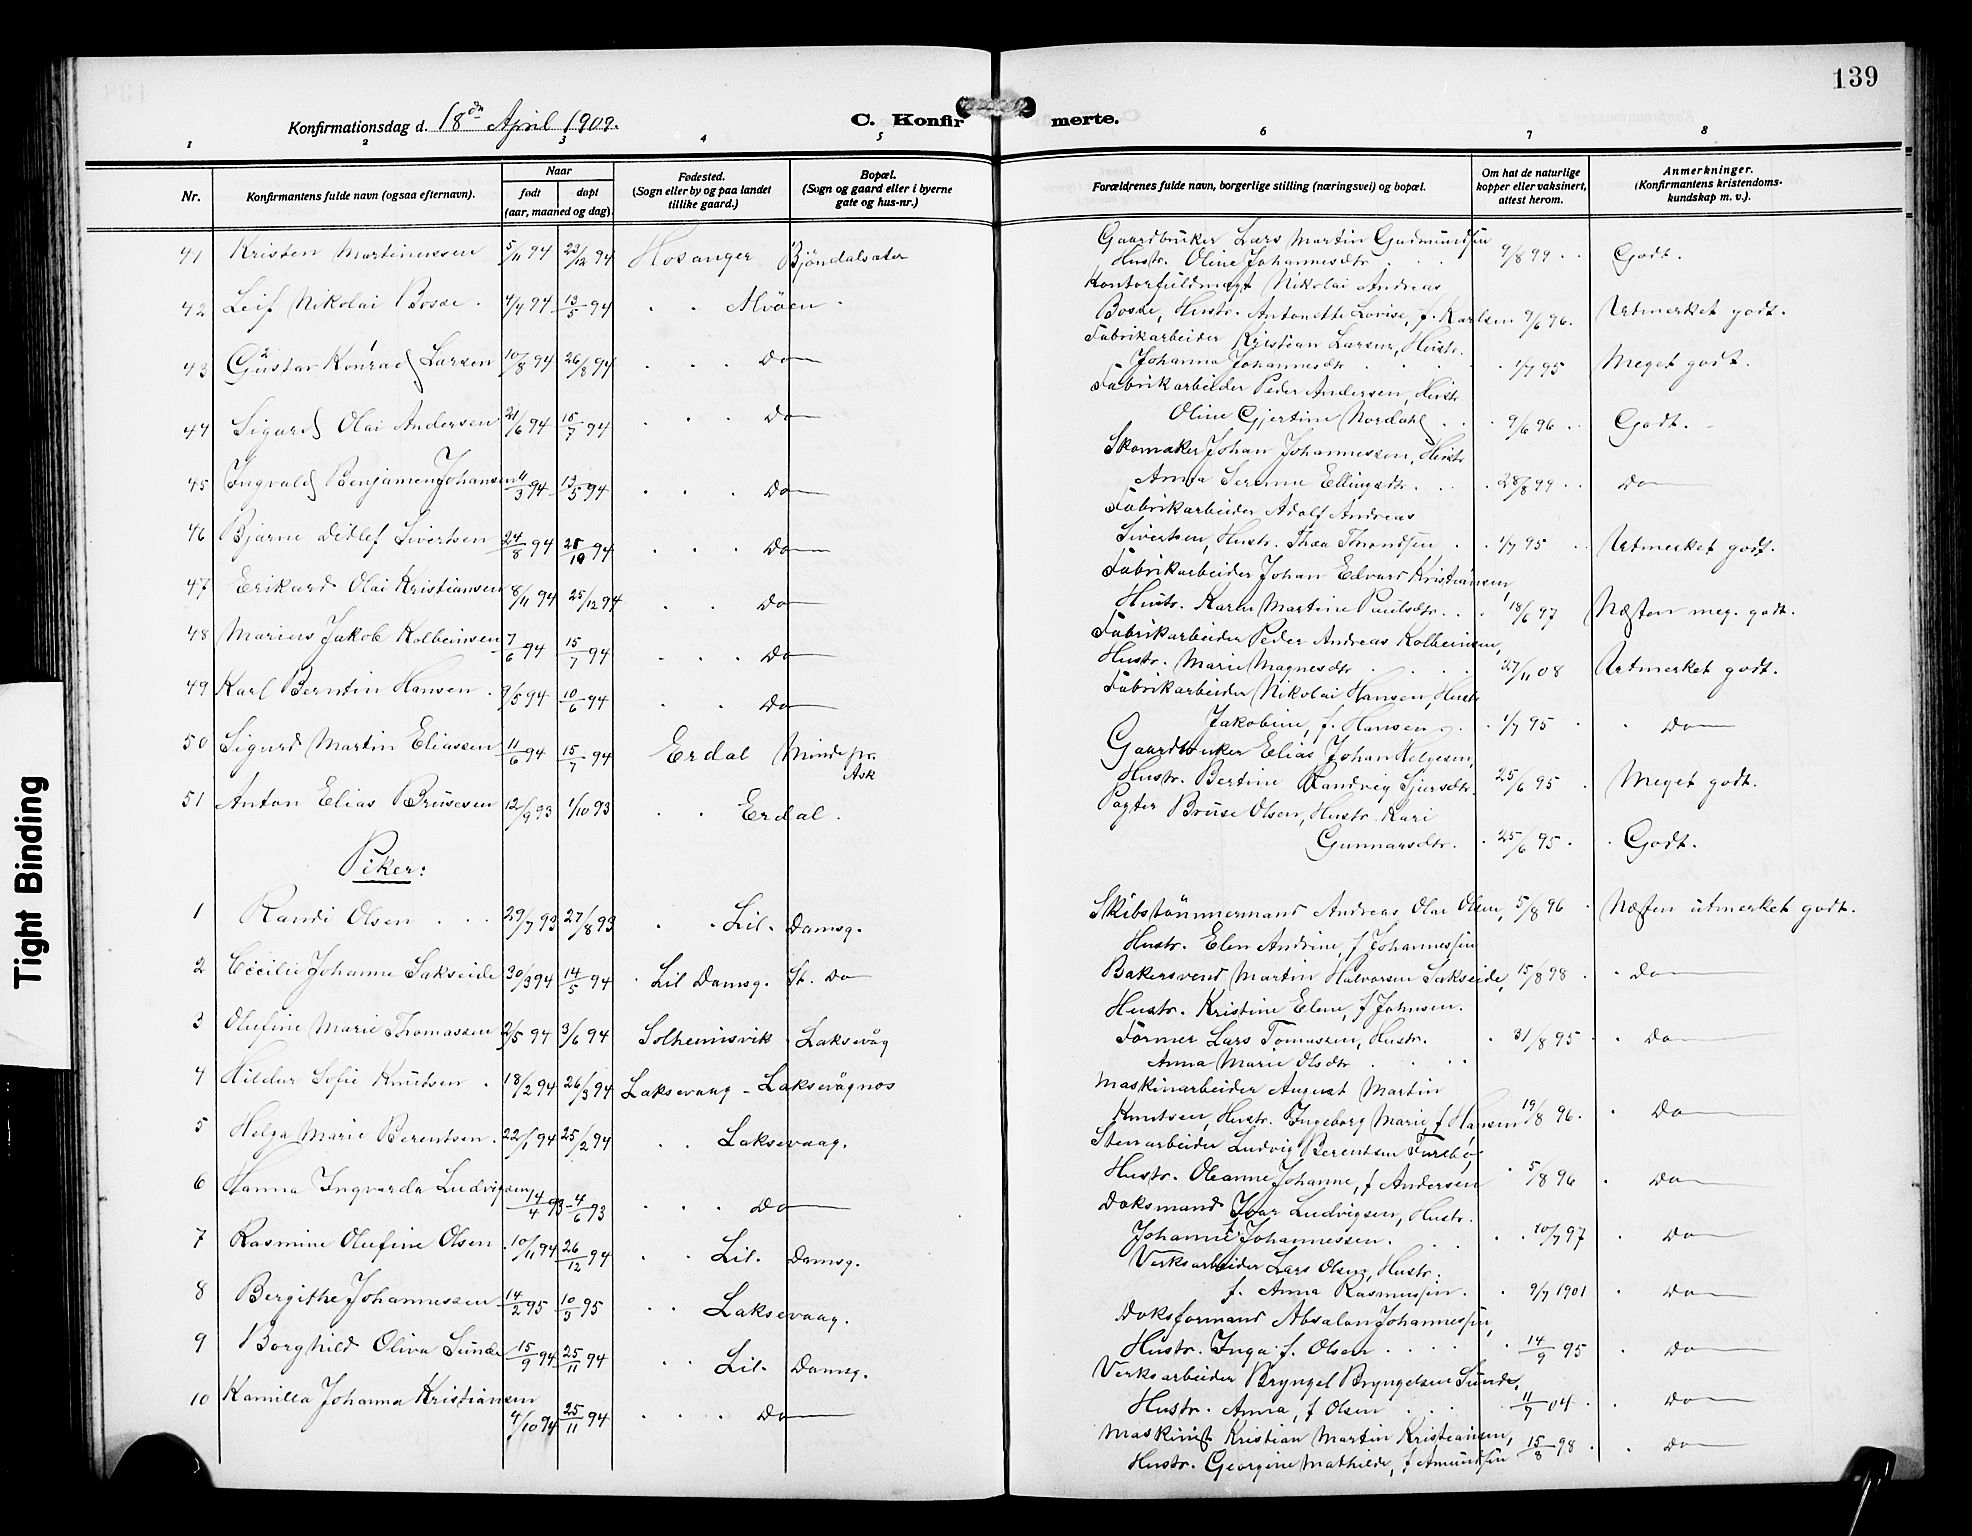 139
Konfirmationsdag d. 18de April 1909.
C. Konfirmerte.
1 2 3 4 5 6 7 8
Nr.
Konfirmantens fulde navn (ogsaa efternavn).
Naar
født døpt
(aar, maaned og dag).
Fødested.
(Sogn eller by og paa landet
tillike gaard.)
Bopæl.
(Sogn og gaard eller i byerne
gate og hus-nr.)
Forældrenes fulde navn, borgerlige stilling (næringsvei) og bopæl.
Om hat de naturlige
kopper eller vaksinert,
attest herom.
Anmerkninger.
(Konfirmantens kristendoms-
kundskap m. v.).
41 Kristen Martinussen 5/11 94 23/12 94 Hosanger Bjöndalsæter Gaardbruker Lars Martin Gudmundsen
Hustr. Oline Johannesdtr. 9/8 99 Godt.
42 Leif Nikolai Bosse. 4/4 94 13/5 94 Alvöen. Kontorfuldmegt Nikolai Andreas
Bosse, Hustr. Antonette Lovise, f. Karlsen 9/6 96. Utmerket godt.
43 Gustav Konrad Larsen 10/8 94 26/8 94 Do Fabrikarbeider Kristian Larsen, Hustr.
Johanna Johannesdtr. 1/7 95 Meget godt.
44 Sigurd Olai Andersen 21/6 94 15/7 94 Do Fabrikarbeider Peder Andersen, Hustr.
Oline Gjertine Nordahl 9/6 96 Godt.
45 Ingvald Benjamen Johansen 4/3 94 13/5 94 Do Skomaker Johan Johannessen, Hustr
Anna Serine Ellingsdtr. 28/8 99 Do
46 Bjarne Ditlef Sivertsen 24/8 94 28/10 94 Do Fabrikarbeider Adolf Andreas
Sivertsen, Hustr. Thea Throndsen 1/7 95 Utmerket godt.
47 Erikard Olai Kristiansen 8/11 94 25/12 94 Do Fabrikarbeider Johan Edvard Kristiansen,
Hustr. Karen Martine Paulsdtr. 18/6 97 Næsten meg. godt.
48 Marius Jakob Kolbeinsen 7/6 94 15/7 94 Do Fabrikarbeider Peder Andreas Kolbeinsen,
Hustr. Marie Magnesdtr 27/11 08 Utmerket godt.
49 Karl Berntin Hansen. 9/5 94 10/6 94 Do Fabrikarbeider Nikolai Hansen, Hustr
Jakobine, f. Hansen 1/7 95 Do
50 Sigurd Martin Eliassen 11/6 94 15/7 94 Erdal Minde pr.
Ask Gaardbruker Elias Johan Helgesen,
Hustr. Bertine Randvig Sjursdtr. 25/6 95 Meget godt.
51 Anton Elias Brusesen 12/9 93 1/10 93 Erdal. Pagter Bruse Olsen, Hustr. Kari
Gunnarsdtr. 25/6 95. Godt.
Piker:
1 Randi Olsen 29/7 93 27/8 93 Lil. Damsg. Skibstömmermand Andreas Olai Olsen, 5/8 96 Næsten utmerket godt.
Hustr. Elen Andrine, f Johannessen
2 Cecilie Johanne Sakseide 30/3 94 14/5 94 Lil Damsg. St. Do Bakersvend Martin Halvorsen Sakseide, 15/8 98 Do
Hustr. Kristine Elene, f Johnsen.
3 Olufine Marie Thomassen 2/5 94 3/6 94 Solheimsvik Laksevåg Former Lars Tomassen, Hustr. 31/8 95 Do
Anna Marie Olsdtr
4 Hildur Sofie Knutsen. 18/2 94 26/3 94 Laksevaag - Laksevågnes Maskinarbeider August Martin
Knutsen, Hustr. Ingeborg Marie, f Hansen 19/8 96. Do
5 Helga Marie Berentsen. 22/1 94 25/2 94 Laksevaag. Stenarbeider Ludvig Berentsen
Hustr. Oleanne Johanne, f Andersen 5/8 96 Do
6 Hanna Ingvarda Ludvigsen 14/4 93 4/6 93 Do Doksmand Ivar Ludvigsen, Hustr.
Johanne Johannessen. 10/7 97 Do
7 Rasmine Olufine Olsen 10/11 94 26/12 94 Lil. Damsg. Verksarbeider Lars Olsen, Hustr.
f. Anna Rasmussen. 9/7 1901 Do
8 Bergithe Johannessen 14/2 95 10/3 95 Laksevaag. Doksformand Absalon Johannessen,
Hustr. Inga f. Olsen 14/9 95 Do
9 Borghild Oliva Sunde 15/9 94 25/11 94 Lil. Damsg. Verksarbeider Bryngel Bryngelsen Sunde,
Hustr. Anna, f Olsen 11/7 04 Do
10 Kamilla Johanna Kristiansen
4/10 94 25/11 94 Do Maskinist Kristian Martin Kristiansen,
Hustr. Georgine Mathilde, f Amundsen 15/8 98 Do
Tight Binding